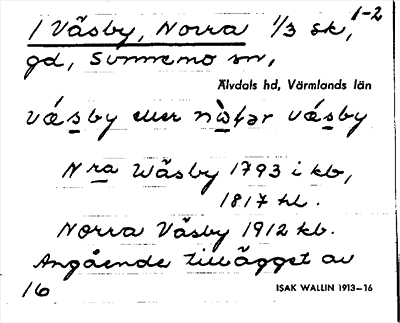 1-2
1 Väsby, Norra 1/3 sk,
gd, Sunnemo sn,
Älvdals hd, Värmlands län
vás̲by eller nò̲ṣər vás̲by
Nra Wäsby 1793 i kb,
1817 hl.
Norra Väsby 1912 kb.
Angående tillägget av
16
ISAK WALLIN 1913–16